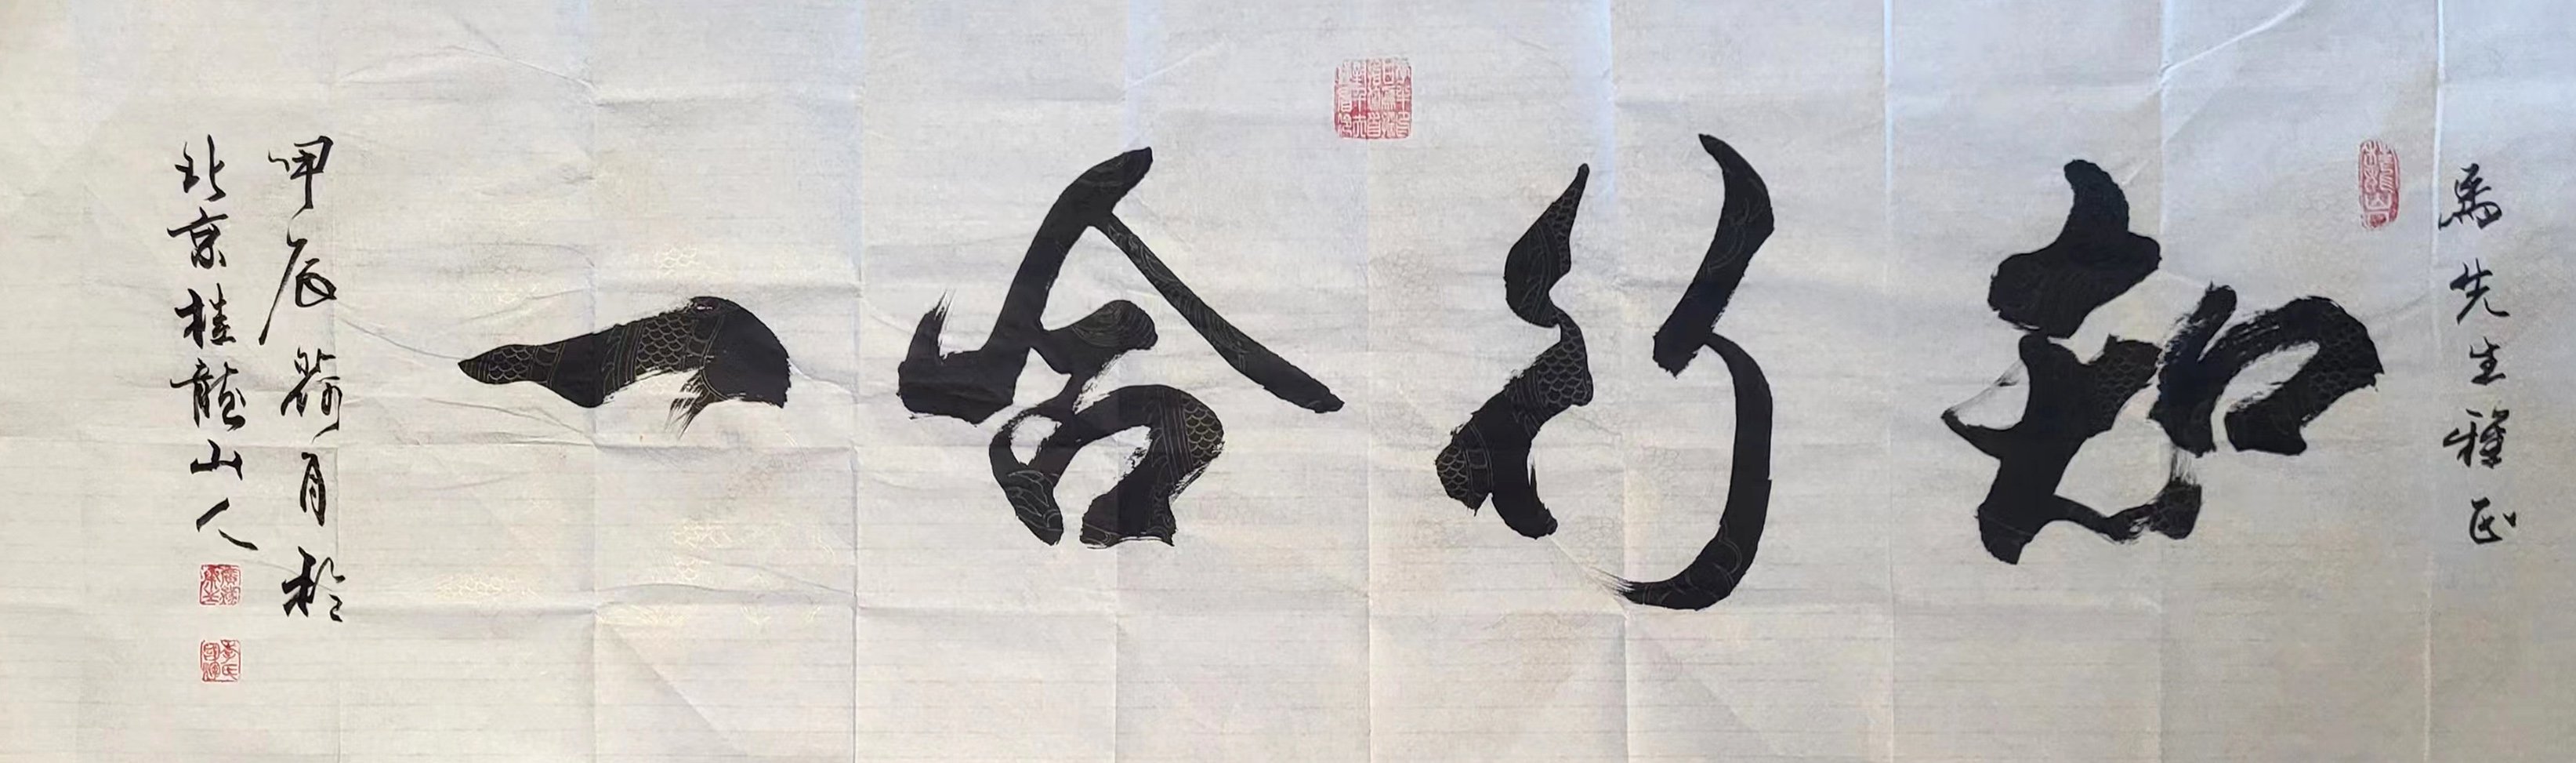 馬先生雅正
知行合一
甲辰荷月於
北京桂龍山人